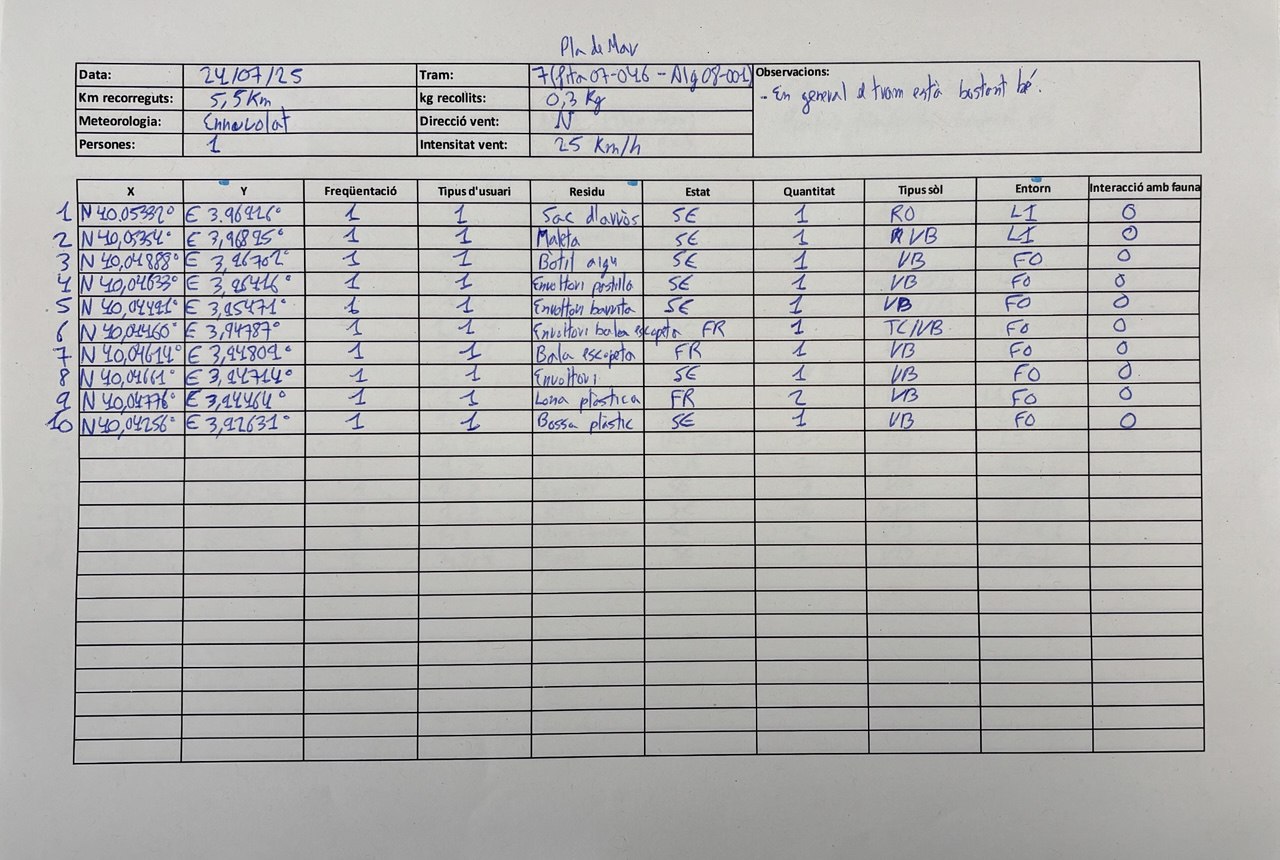 Pla de Mar
Data: 24/07/25 Tram: 7 (fita 07-046 - Alg 08-001) Observacions:
- En general el tram està bastant bé.
Km recorreguts: 5,5 Km kg recollits: 0,3 Kg
Meteorologia: Ennuvolat Direcció vent: N
Persones: 1 Intensitat vent: 25 Km/h
X Y Freqüentació Tipus d'usuari Residu Estat Quantitat Tipus sòl Entorn Interacció amb fauna
1 1 1 Sac d'arròs SE 1 RO LI 0
2 1 1 Maleta SE 1 VB LI 0
3 N 40,04888° E 3,96702° 1 1 Botil aigu SE 1 VB FO 0
4 1 1 Envoltori pastilla SE 1 VB FO 0
5 N 40,04491° E 3,95471° 1 1 Envoltori barrita SE 1 VB FO 0
6 N 40,04460° E 3,94787° 1 1 Envoltori bala escopeta FR 1 TC/VB FO 0
7 N 40,04614° E 3,94809° 1 1 Bala escopeta FR 1 VB FO 0
8 N 40,04661° E 3,94714° 1 1 Envoltori SE 1 VB FO 0
9 N 40,04776° E 3,94464° 1 1 Lona plàstica FR 2 VB FO 0
10 N 40,04256° E 3,92631° 1 1 Bossa plàstic SE 1 VB FO 0